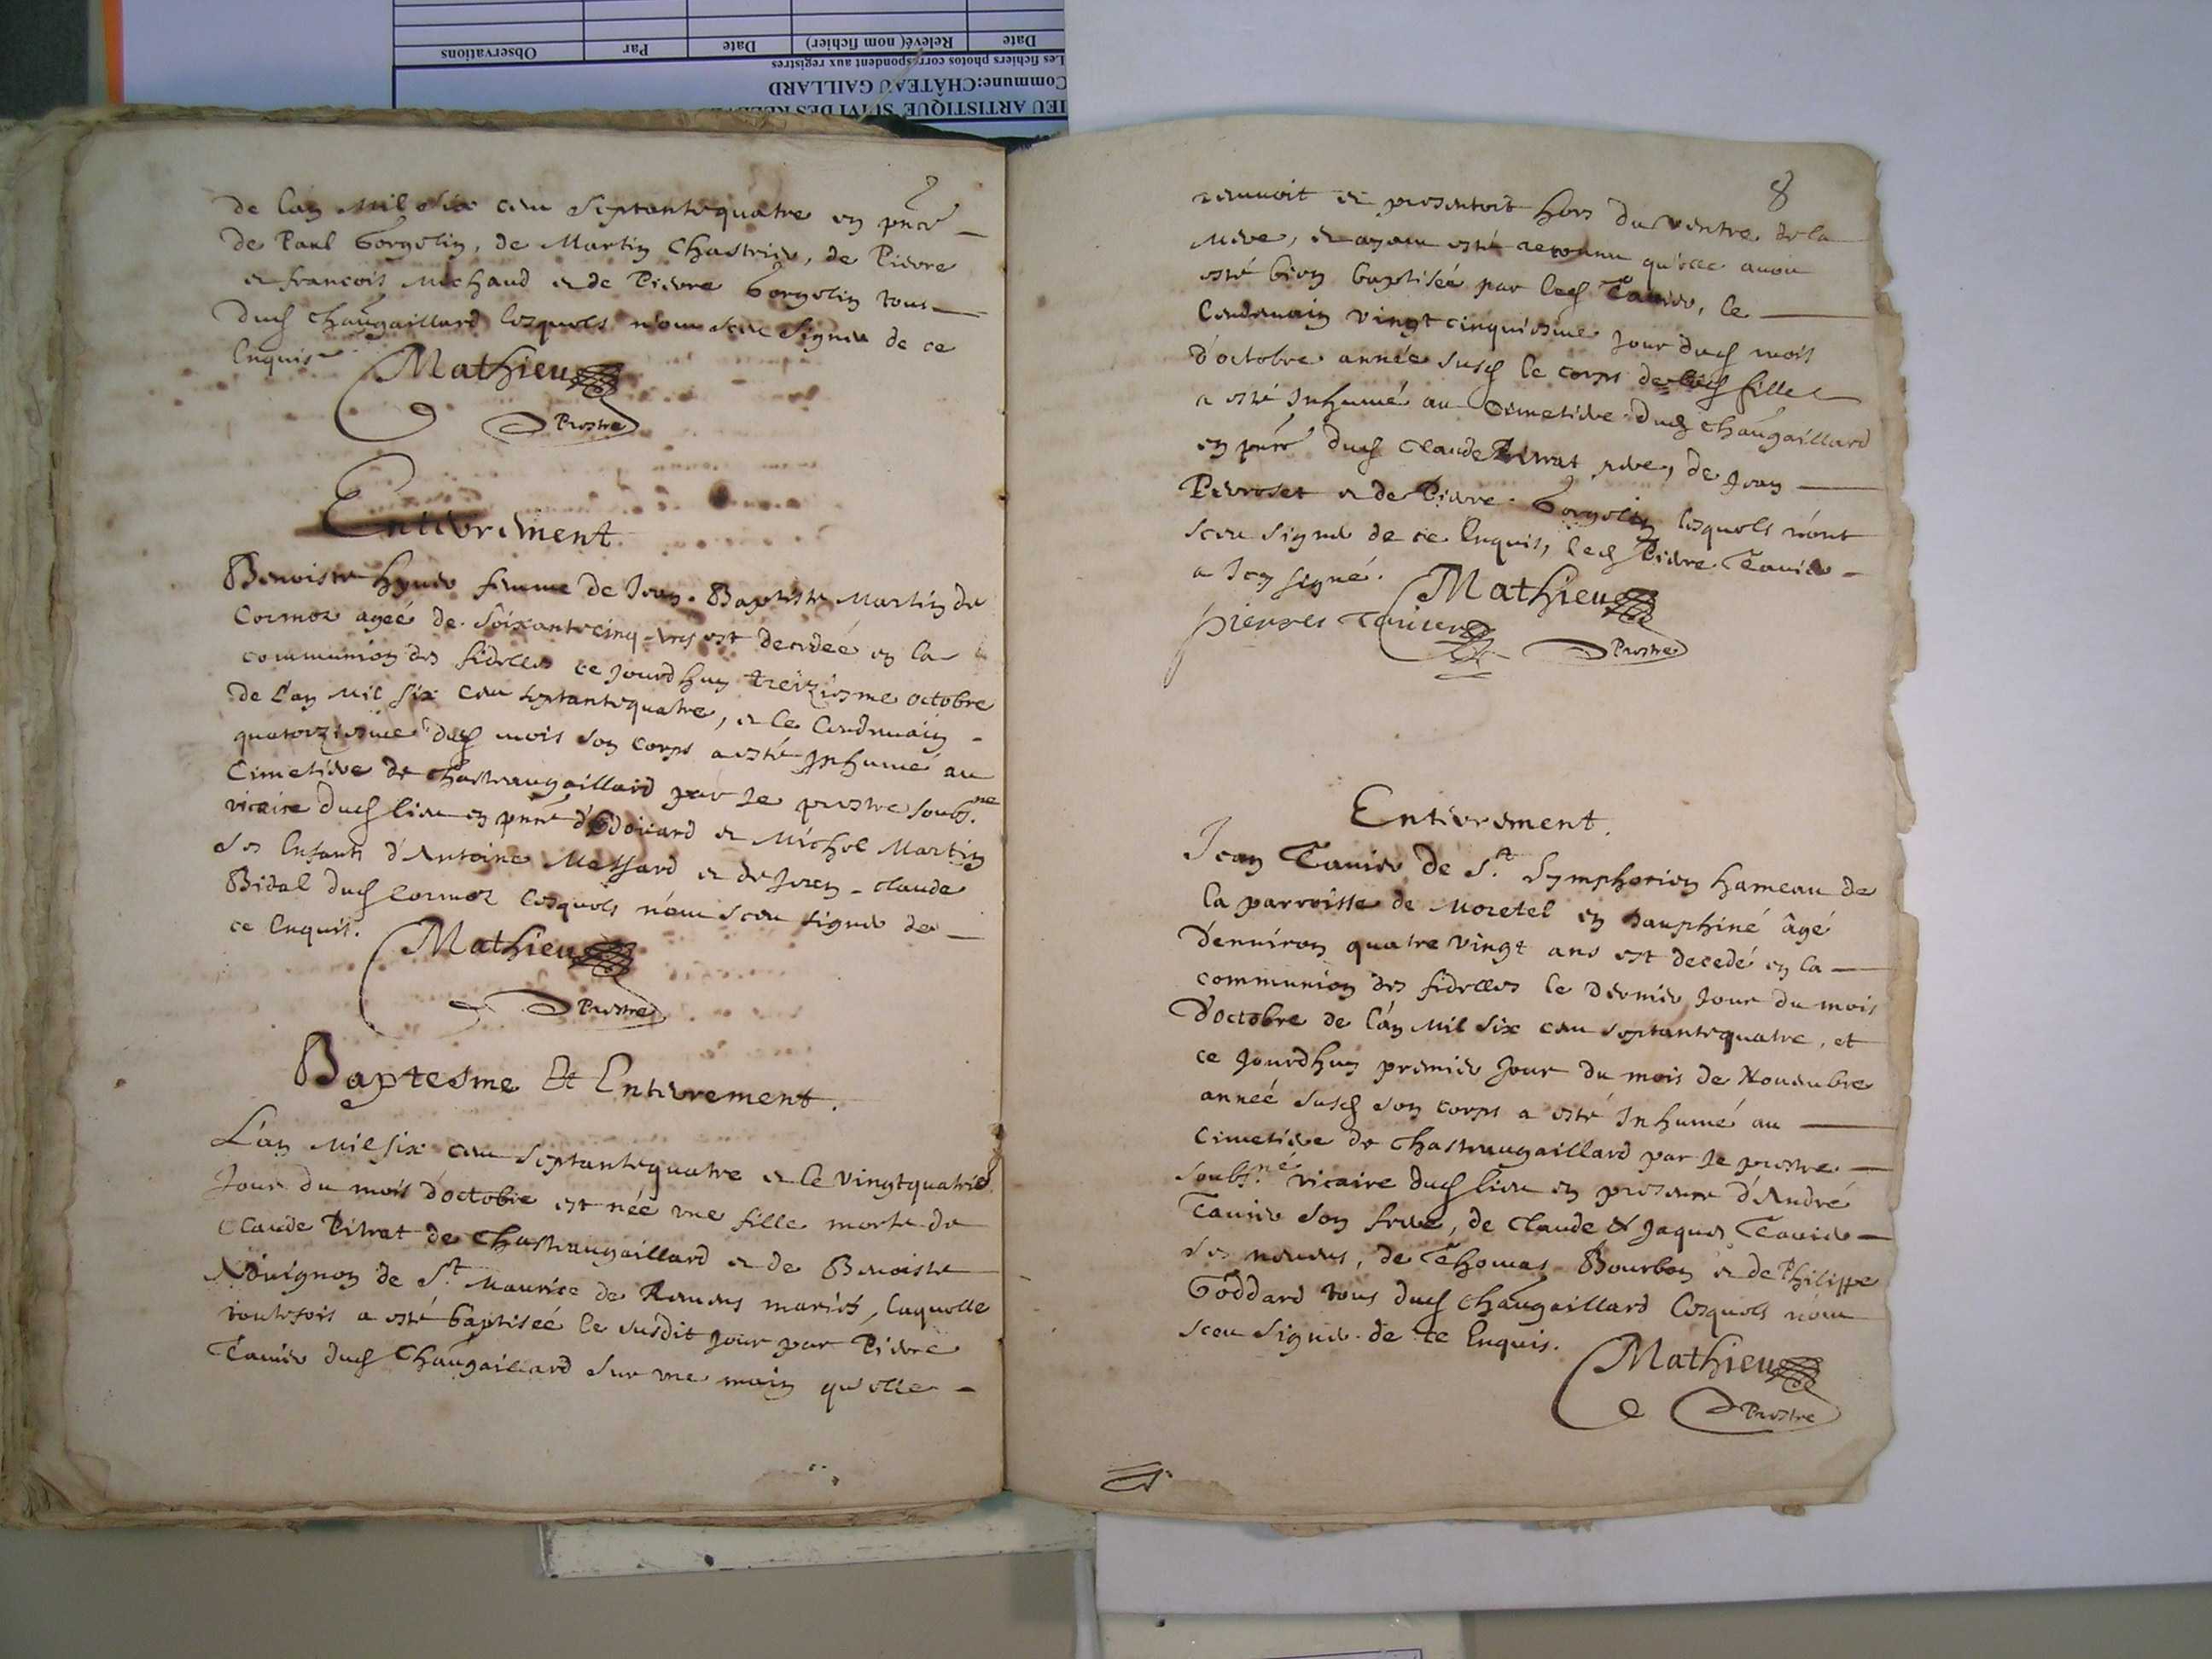 Date Relevé( nom fichier) Date Par Observations
Les fichiers photos correspondent aux registres
Commune:CHÂTEAU GAILLARD
IEU ARTISTIQUE SUIVI DES
de l'an mil six cent septantequatre en pnce
de Paul Gorgolin, de Martin Chastrier, de Pierre
et francois Michaud et de Pierre Gorgolin tous
dud chaûgaillard lesquels n'ont sceu signer de ce
Enquis
Mathieu
Prestre
Enterrement
Benoiste femme de Jean Baptiste Martin de
Cormoz ageé de soixantecinq ans est decedeé en la
communion des fidelles ce jourdhuy treiziesme octobre
de l'an mil six cent septantequatre, et le lendemain
quatorziesme dud mois son corps a esté Inhumé au
Cimetiere de chasteaugaillard par Je prestre soubs.né
vicaire dud lieu en pnce d'Edoüard et Michel Martin
ses Enfants d'Antoine Massard et de Jean Claude
Bidal dud Cormoz lesquels n'ont sceu signer de
ce Enquis.
Mathieu
Prestre
Baptesme Et Enterrement.
L'an mil six cent septantequatre et le vingtquatrie
Jour du mois d'octobre est neé une fille morte de
Claude Pitrat de Chasteaugaillard et de Benoiste
de St Maurice de Remens mariés, laquelle
toutefois a esté baptiseé le susdit jour par Pierre
Tanier dud Chaûgaillard sur une main qu'elle
8
remuoit et presentoit hors du ventre de la
mere, et ayant esté reconnu qu'elle avoit
esté bien baptiseé par led Tanier, le
Lendemain vingtcinquiesme jour dud mois
d'octobre année susd le corps de lad fille
a esté Inhumé au Cimetiere dud chaûgaillard
en pnce dud Claude Pitrat pere, de Jean
Perroset et de Pierre Gorgolin lesquels n'ont
sceu signer de ce Enquis, led Pierre Tanier
a Icy signé.
Mathieu
pierres Tanier
Prestre
Enterrement.
Jean Tanier de St Symphorien hameau de
la parroisse de Moretel en dauphiné âgé
d'environ quatre vingt ans est decedé en la
communion des fidelles le dernier jour du mois
d'octobre de l'an mil six cent septantequatre, et
ce jourdhuy premier jour du mois de Novembre
anneé susd son corps a esté Inhumé au
Cimetiere de chasteaugaillard par Je prestre
soubs.né vicaire dud lieu en presence d'André
Tanier son frere, de Claude & Jaques Tanier
ses neveus, de Thomas Bourbon et de Philippe
Goddard tous dud chaûgaillard lesquels n'ont
sceu signer de ce Enquis.
Mathieu
Prestre